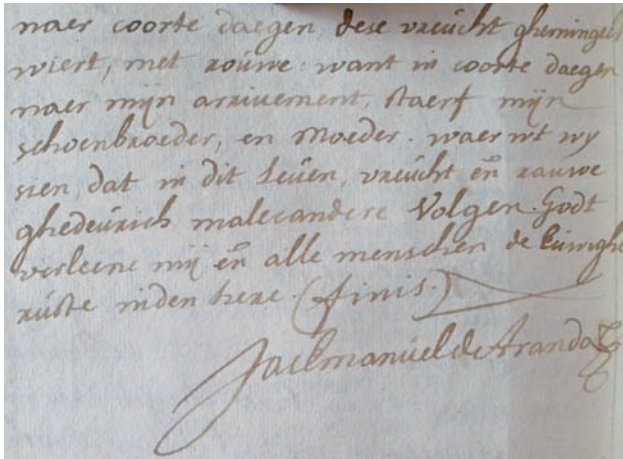 naer coorte daegen, dese vreucht ghemingelt
wiert, met rouwe: want in coorte daegen
naer mijn arrivement, staerf mijn
schoenbroeder, en Moeder. waer wt wy
sien, dat in dit leúen, vreúcht eñ rauwe
ghedeúrich malecandere Volgen. Godt
verleene mij eñ alle menschen de Eúwighe
rúste inden here. (finis.)
Jac Emanúel de Aranda